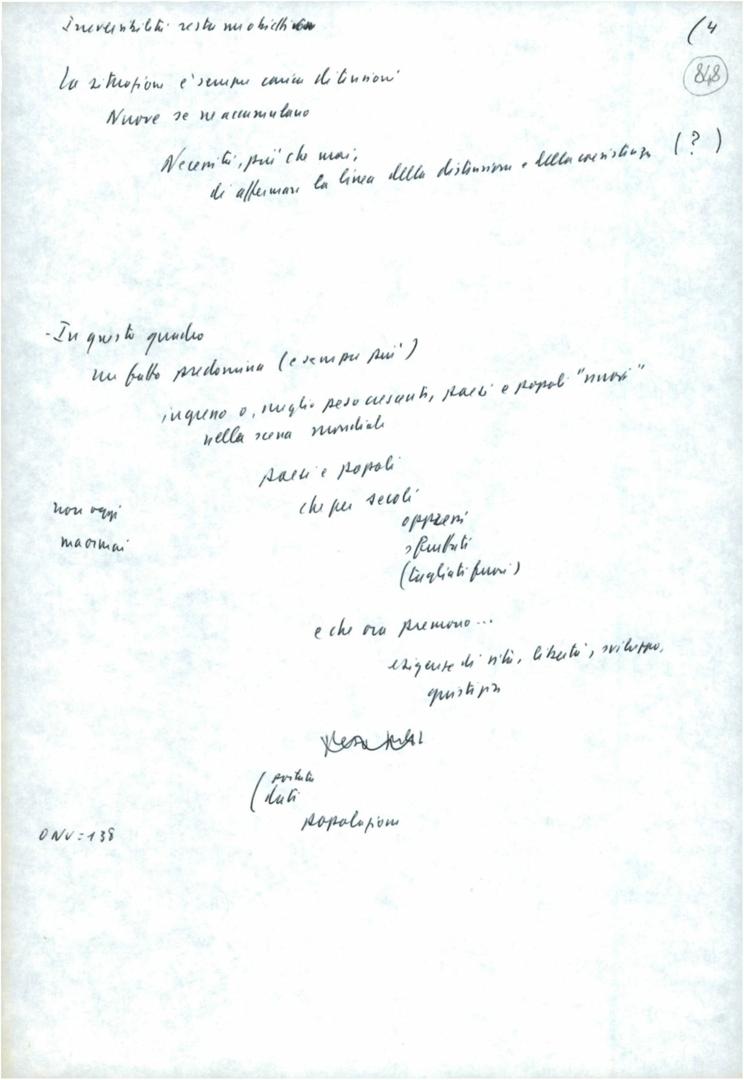 Irreversibilità resta un obiettivo
(4
848
La situazione è sempre carica di tensioni
Nuove se ne accumulano
Necessità, più che mai,
di affermare la linea della distensione e della coesistenza (?)
- In questo quadro
un fatto predomina (e sempre più)
ingresso o, meglio peso crescente, paesi e popoli "nuovi"
nella scena mondiale
paesi e popoli
che per secoli
non oggi
ma ormai
oppressi
sfruttati
(tagliati fuori)
e che ora premono...
esigenze di vita, libertà, sviluppo,
giustizia
(portata
dati
popolazione
ONU = 138